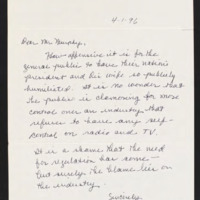 4-1-96
Dear Mr. Murphy,
How offensive it is for the
general public to have their nation's
president and his wife so publicly
humiliated. It is no wonder that
the public is clamoring for more
control over an industry that
refuses to have any self-
control on radio and TV.
It is a shame that the need
for regulation has come —
but surely the blame lies on
the industry.
Sincerely,